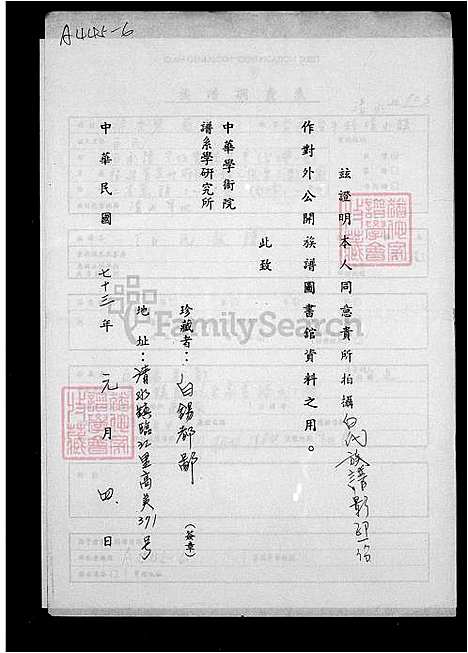 A445-6
茲證明本人同意貴所拍攝白氏族譜影印份
作對外公開族譜圖書館資料之用。
此致
中華學術院
譜系學研究所
珍藏者：白錫都
(簽章)
地址：清水鎮臨江里高美371號
中華民國七十三年元月四日
FamilySearch